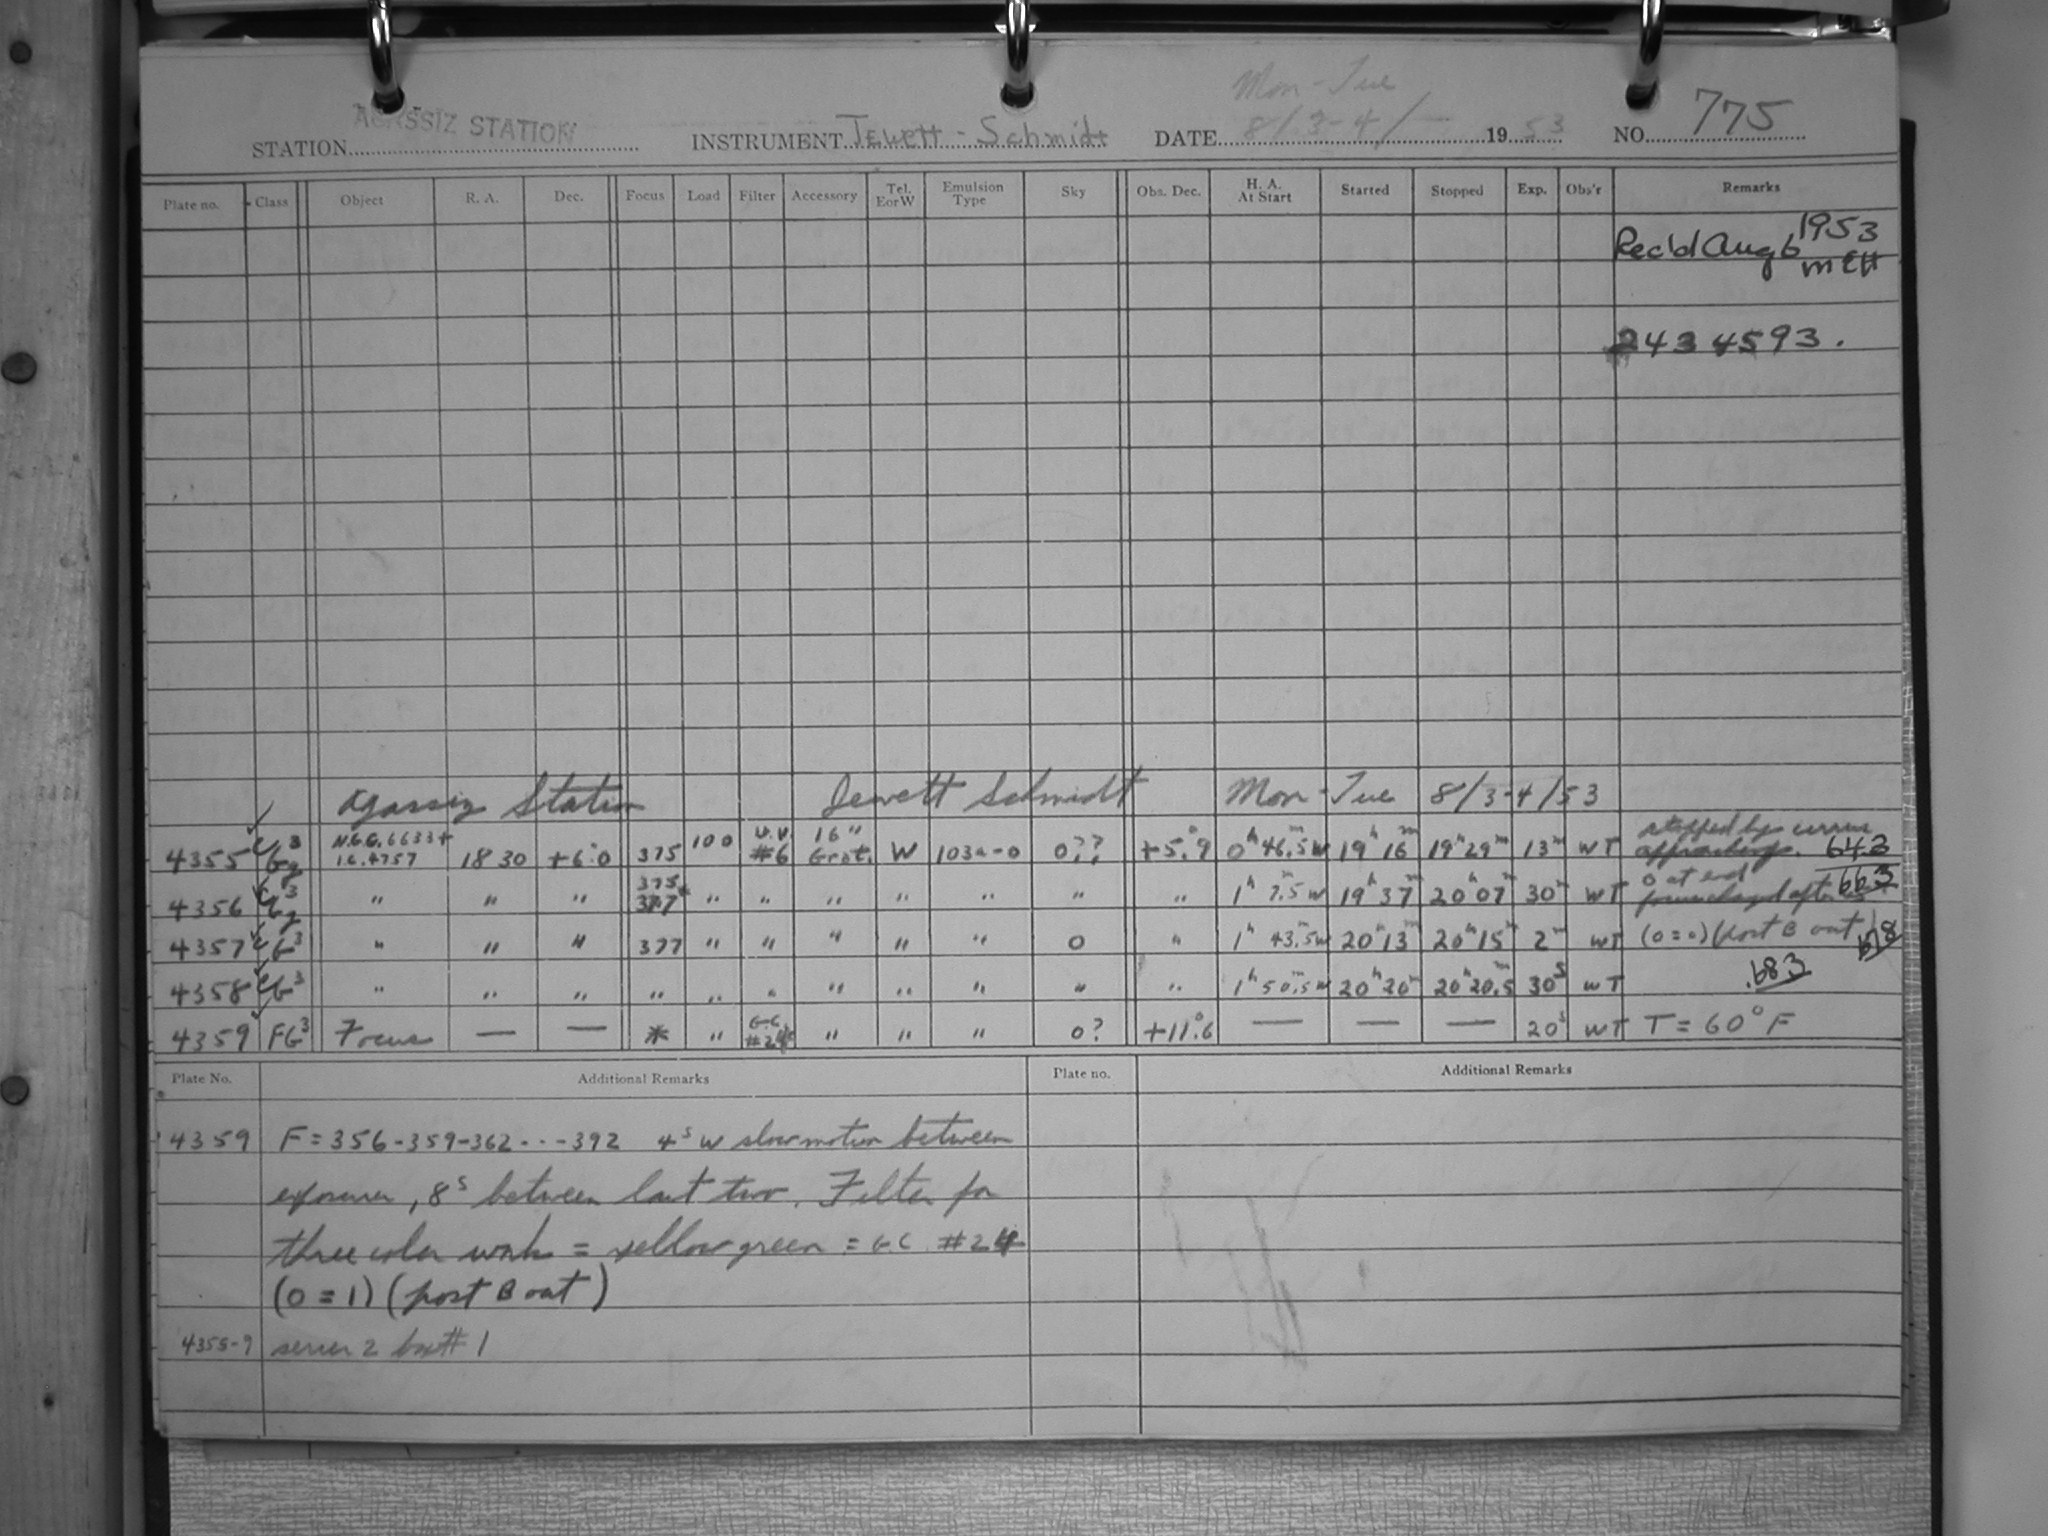 Mon-Tue
STATION AGASSIZ STATION INSTRUMENT Jewett-Schmidt DATE 8/3-4/ 1953 NO. 775
Plate no. Class Object R. A. Dec. Focus Load Filter Accessory Tel. E or W Emulsion Type Sky Obs. Dec. H. A. At Start Started Stopped Exp. Obs'r Remarks
Rec'd Aug 6 1953
MEH
2434593.
Agassiz Station Jewett Schmidt Mon-Tue 8/3-4/53
4355 N.G.C. 6633 + I.C. 4757 18 30 +6°.0 375 100 U.V. #6 16" Grat. W 103a-O 0?? +5°.9 0h 46.5m W 19h 16m 19h 29m 13m WT stopped by cirrus approaching. .643
4356 " " " 375 377 " " " " " " " 1h 7.5m W 19h 37m 20h 07m 30m WT 0 at end focus changed after .663
4357 CG3 " " " 377 " " " " " 0 " 1h 43.5m W 20h 13m 20h 15m 2m WT (0=0) (post B out) .678
4358 CG3 " " " " " " " " " " " 1h 50.5m W 20h 20m 20h 20.5m 30s WT .683
4359 FG3 Focus — — * " G.C. #24 " " " 0? +11°.6 — — — 20s WT T = 60° F
Plate No. Additional Remarks Plate no. Additional Remarks
4359 F = 356-359-362---392 4s W slow motion between
exposures, 8s between last two. Filter for
three color work = yellow green = G.C. #24
(0=1) (post B out)
4355-9 series 2 box# 1